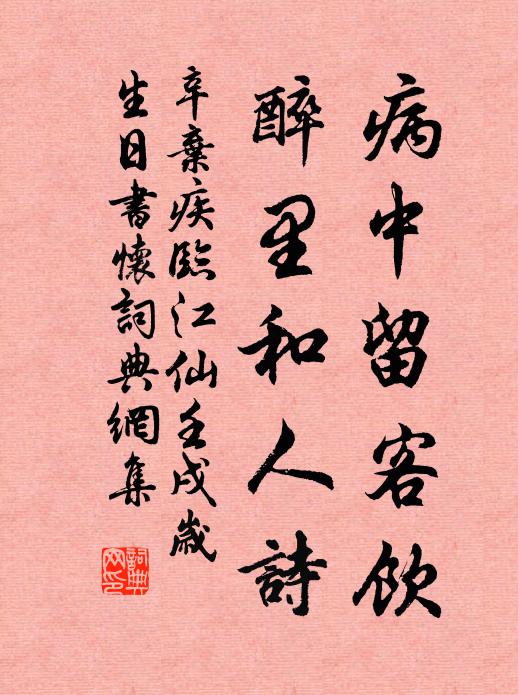 病中留客飲
醉里和人詩
辛棄疾臨江仙壬戌歲
生日書懷詞典網集
詞典網印